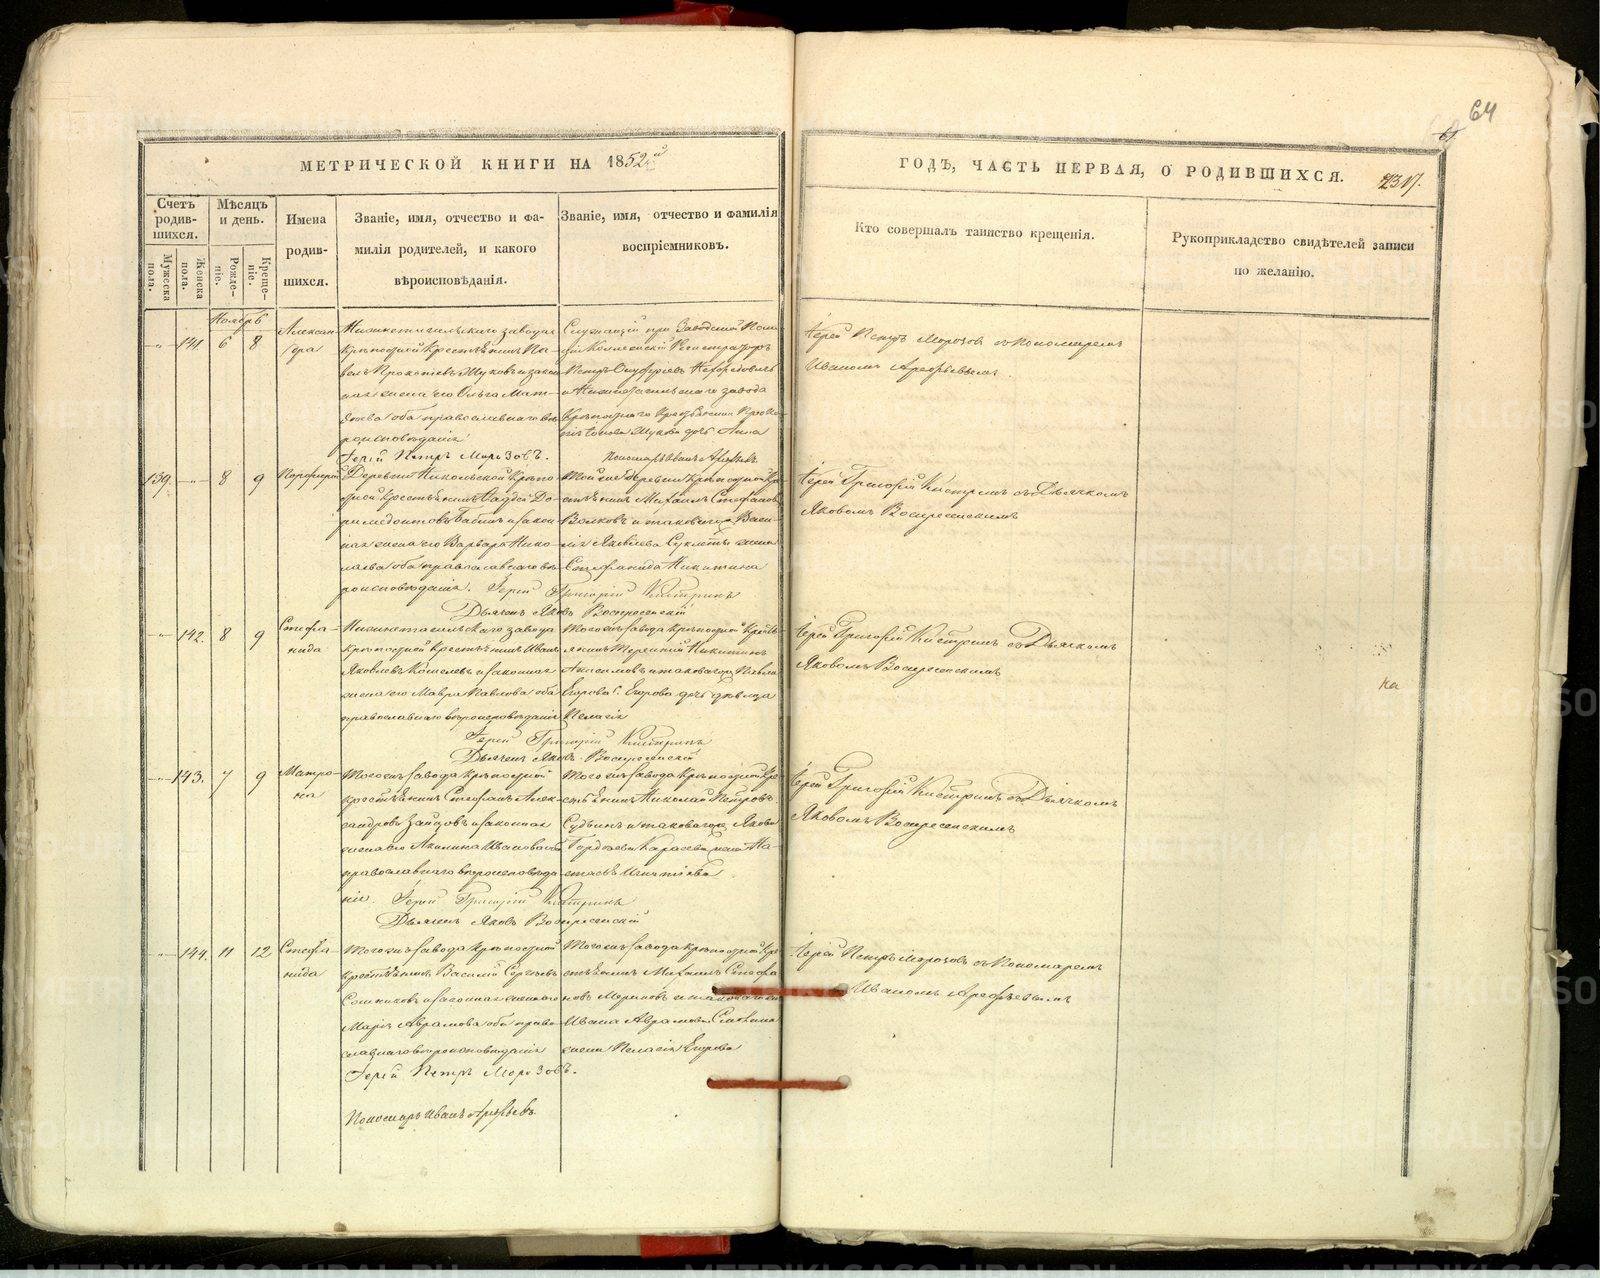 64
МЕТРИЧЕСКОЙ КНИГИ НА 1852й
ГОДЪ, ЧАСТЬ ПЕРВАЯ, О РОДИВШИХСЯ.
Счетъ родив-шихся.
Мѣсяцъ и день.
Имена родив-шихся.
Званіе, имя, отчество и фа-
милія родителей, и какого
вѣроисповѣданія.
Званіе, имя, отчество и фамилія
воспріемниковъ.
Кто совершалъ таинство крещенія.
Рукоприкладство свидѣтелей записи
по желанію.
Мужеска пола.
Женска пола.
Рожде-ніе.
Креще-ніе.
Ноябрь
141. 6 8
Алексан-
дра
Нижнетагильскаго завода
крѣпостной крестьянинъ Па-
велъ Прокопіевъ Жуковъ и закон
ная жена его Ольга Мат-
оба православнаго вѣ
роисповѣданія
Іерей Петръ Морозовъ.
Служащій при Заводской
Коллежскій Регистраторъ
Петръ
и Нижнетагильскаго завода
дочь Анна
Пономарь Иванъ Арефьевъ
Іерей Петръ Морозовъ съ Пономаремъ
Иваномъ Арефьевымъ.
139. 8 9
Порфирій
Деревни Никольской Крѣпо-
стной крестьянинъ
Бабинъ и закон
ная жена его Варвара Нико-
лаева оба православнаго вѣ
роисповѣданія. Іерей Григорій Кистринъ
Дьячекъ Яковъ Воскресенскій
Той же деревни крѣпостной кре
стьянинъ Михаилъ Стефановъ
Волковъ и таковаго же Васи-
лія Яковлева жена
Стефанида Никитина
Іерей Григорій Кистринъ съ Дьячкомъ
Яковомъ Воскресенскимъ
142. 8 9
Стефа-
нида
Нижнетагильскаго завода
крѣпостной крестьянинъ Иванъ
Яковлевъ Кошелевъ и законная
жена его Мавра Павлова оба
православнаго вѣроисповѣданія
Іерей Григорій Кистринъ
Дьячекъ Яковъ Воскресенскій
Того же завода крѣпостной кресть
янинъ Терентій Никитинъ
Анисимовъ и таковаго же Павла
Егорова дочь дѣвица
Пелагія
Іерей Григорій Кистринъ съ Дьячкомъ
Яковомъ Воскресенскимъ
143. 7 9
Матро-
на
Того же завода крѣпостной
крестьянинъ Стефанъ Алек-
сандровъ Зайцовъ и законная
жена его Акилина Иванова оба
православнаго вѣроисповѣда
нія. Іерей Григорій Кистринъ
Дьячекъ Яковъ Воскресенскій
Того же завода крѣпостной кре
стьянинъ Николай Петровъ
Судьинъ и таковаго же Якова
Гордѣева Карасева жена На-
стасья Игнатіева
Іерей Григорій Кистринъ съ Дьячкомъ
Яковомъ Воскресенскимъ
144. 11 12
Стефа
нида
Того же завода крѣпостной
крестьянинъ Василій Сергѣевъ
Сошниковъ и законная жена его
Марія Аврамова оба право-
славнаго вѣроисповѣданія
Іерей Петръ Морозовъ.
Пономарь Иванъ Арефьевъ
Того же завода крѣпостной кре
стьянинъ Михаилъ Стефа
новъ Мериновъ и таковаго же
Ивана Аврамова
жена Пелагія Егорова
Іерей Петръ Морозовъ съ Пономаремъ
Иваномъ Арефьевымъ
METRIKI.GASO-URAL.RU